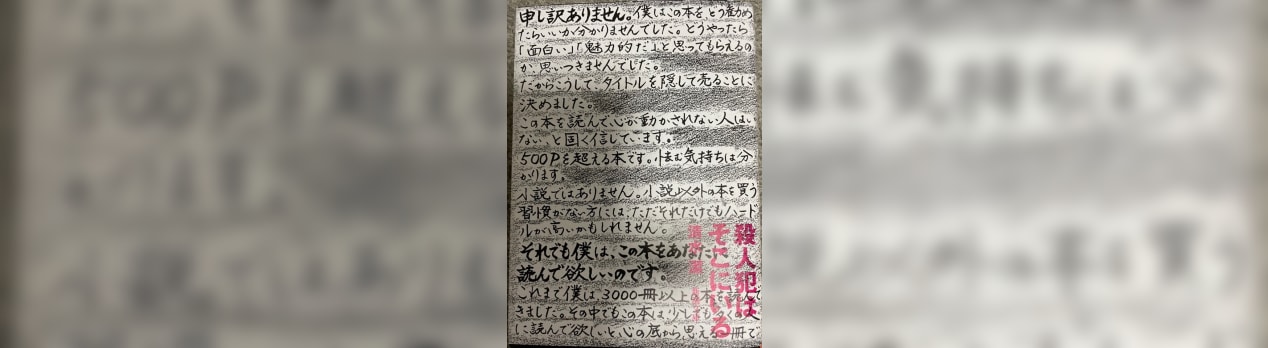 申し訳ありません。僕はこの本を、どう勧め
たらいいか分かりませんでした。どうやったら
「面白い」「魅力的だ」と思ってもらえるの
か、思いつきませんでした。
だからこうして、タイトルを隠して売ることに
決めました。
この本を読んで心が動かされない人はい
ない、と固く信じています。
500Pを超える本です。怯む気持ちは分
かります。
小説ではありません。小説以外の本を買う
習慣がない方には、ただそれだけでもハード
ルが高いかもしれません。
それでも僕は、この本をあなたに
読んで欲しいのです。
これまで僕は3000冊以上の本を読んで
きました。その中でもこの本は、少しでも多くの
に読んで欲しいと心の底から思える冊で
殺人犯は
そこにいる